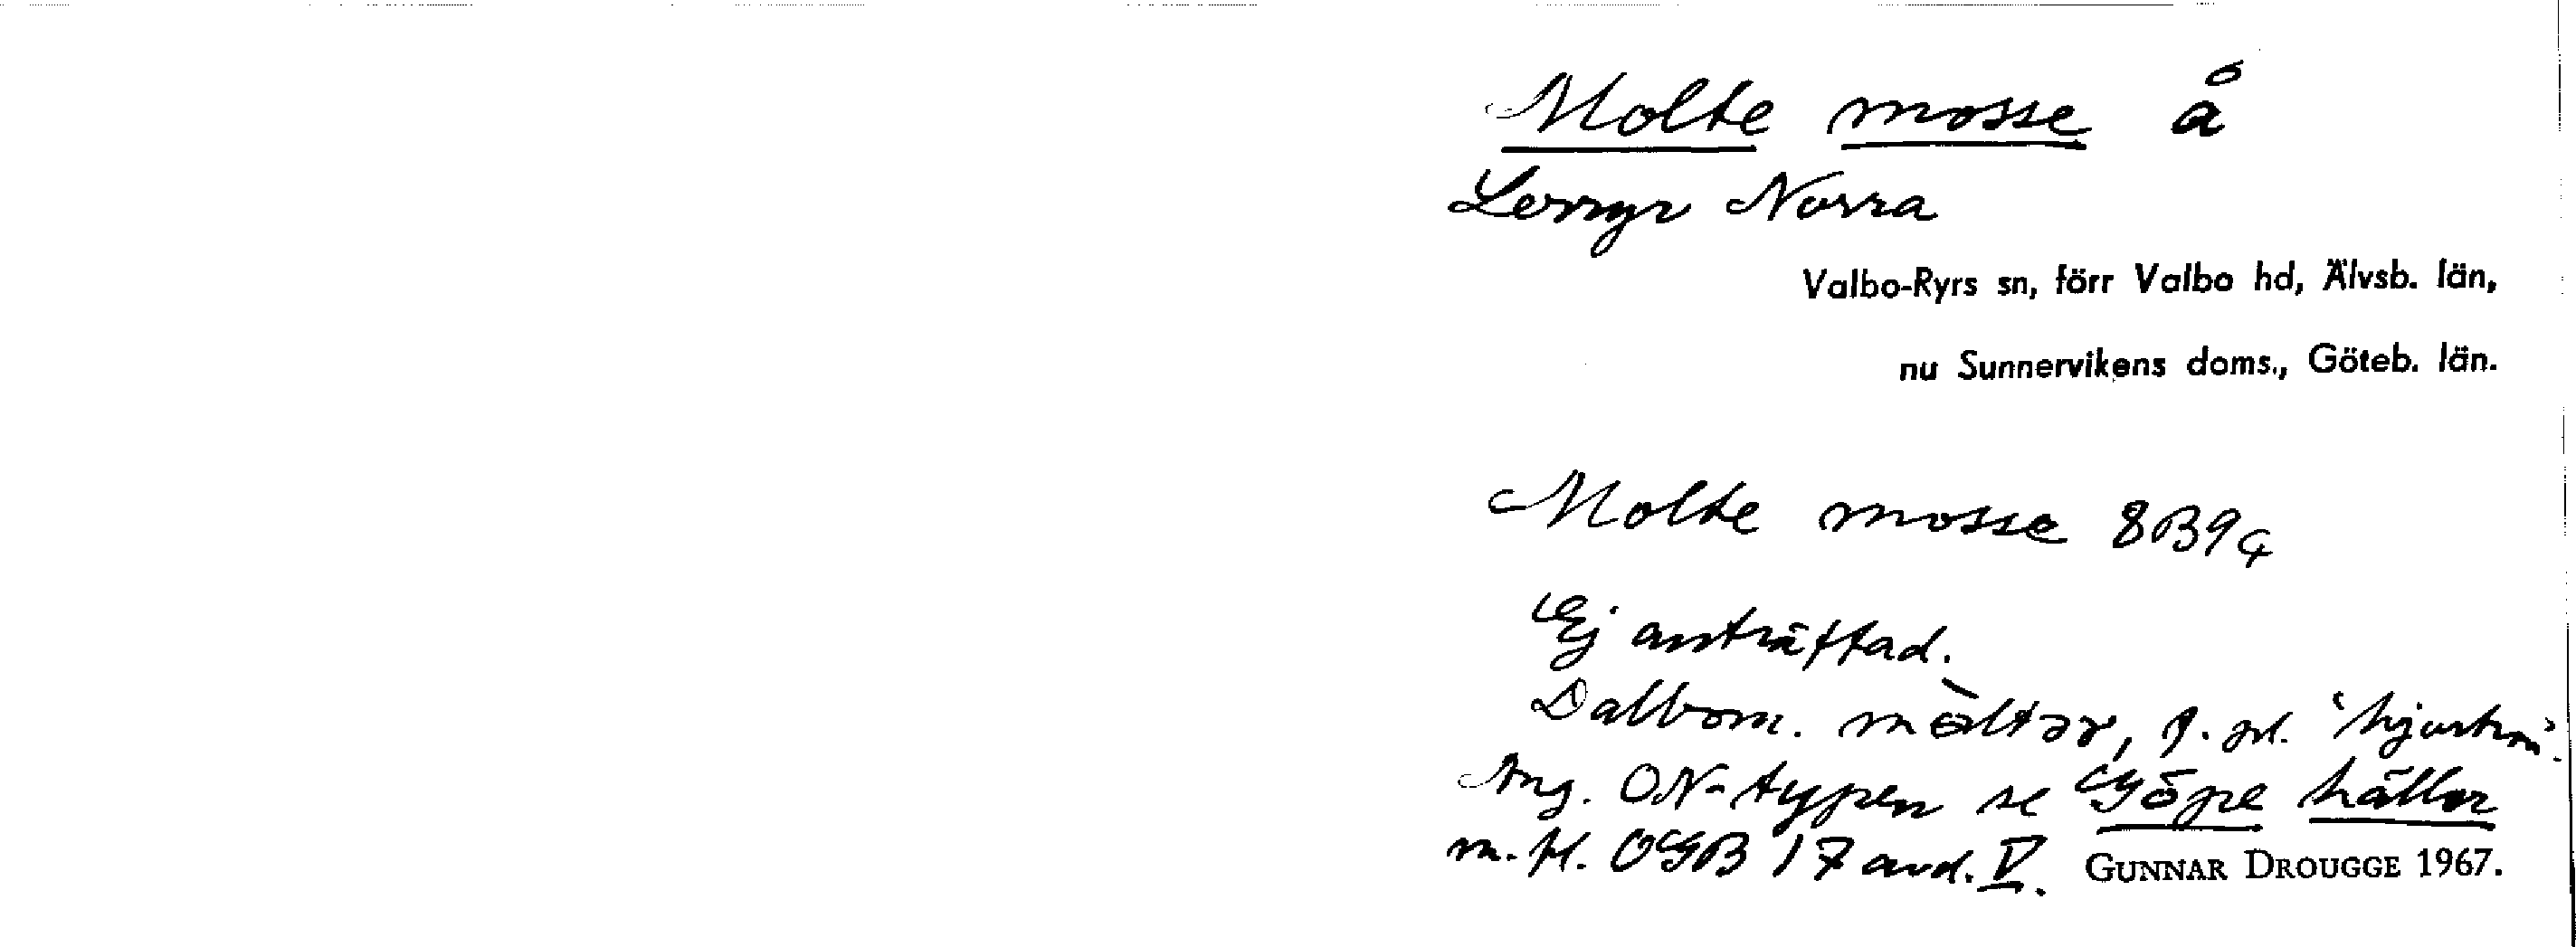 Molte mosse å
Lerryr Norra
Valbo-Ryrs sn, förr Valbo hd, Älvsb. län,
nu Sunnervikens doms., Göteb. län.
Molte mosse 8B9c
Ej anträffad.
Dalbom. mòltər, f. pl. 'hjortron'.
Ang. ON-typen se Göpe hällor
m. fl. OGB 17 avd. V. GUNNAR DROUGGE 1967.